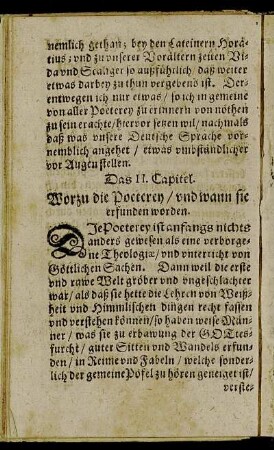 nemlich gethan; bey den Lateinern Horā-
tius; vnd zu vnserer Vorältern zeiten Vi-
da vnd Scaliger so außführlich / daß weiter
etwas darbey zu thun vergebens ist. Der-
entwegen ich nur etwas / so ich in gemeine
von aller Poeterey zu erinnern von nöthen
zu sein erachte / hiervor setzen wil / nachmals
daß was vnsere Deutsche Sprache vor-
nemblich angehet / etwas vmbständlicher
vor Augen stellen.
Das II. Capitel.
Worzu die Poeterey / vnd wann sie
erfunden worden.
DJe Poeterey ist anfangs nichts
anders gewesen als eine verborge-
ne Theologiæ / vnd vnterricht von
Göttlichen Sachen. Dann weil die erste
vnd rawe Welt gröber vnd vngeschlachter
war / als daß sie hette die Lehren von Weiß-
heit vnd Himmlischen dingen recht fassen
vnd verstehen können / so haben weise Män-
ner / was sie zu erbawung der GOttes-
furcht / guter Sitten vnd Wandels erfun-
den / in Reime vnd Fabeln / welche sonder-
lich der gemeine Pöfel zu hören geneiget ist /
verste-